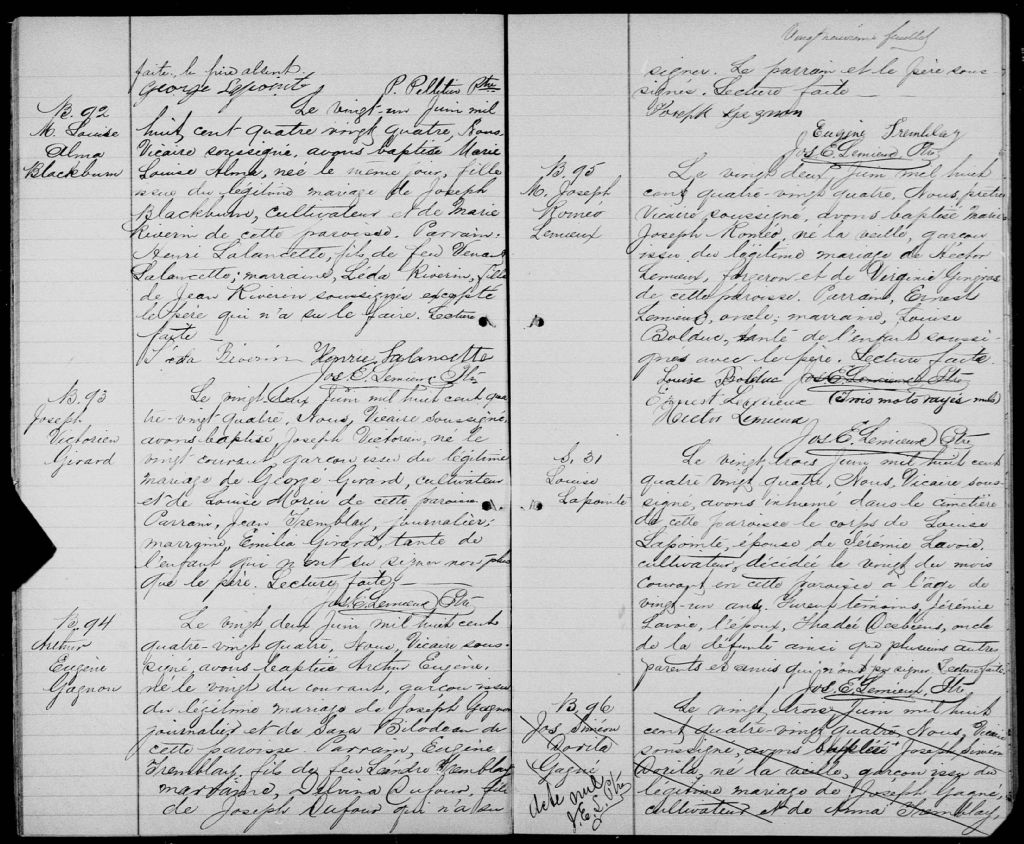 faite, le père absent
George Lapointe P. Pelletier Ptre
B. 92
M. Louise
Alma
Blackburn
Le vingt-un Juin mil
huit cent quatre vingt quatre, Nous
Vicaire soussigné, avons baptisé Marie
Louise Alma, née le même jour, fille
issue du légitime mariage de Joseph
Blackburn, cultivateur et de Marie
Riverin de cette paroisse. Parrain,
Henri Lalancette, fils de feu Venant
Lalancette; marraine, Léda Riverin, fille
de Jean Riverin soussignés excepté
le père qui n'a su le faire. Lecture
faite
Léda Riverin Henrie Lalancette
Jos. E. Lemieux Ptre
B. 93
Joseph
Victorien
Girard
Le vingt deux Juin mil huit cent qua
tre-vingt quatre, Nous, Vicaire soussigné,
avons baptisé Joseph Victorien, né le
vingt courant garçon issu du légitime
mariage de George Girard, cultivateur
et de Louise Morin de cette paroisse
Parrain, Jean Tremblay, journalier;
marraine, Emilia Girard, tante de
l'enfant qui n'ont su signer non plus
que le père. Lecture faite.
Jos. E. Lemieux Ptre
B. 94
Arthur
Eugène
Gagnon
Le vingt deux Juin mil huit cent
quatre-vingt quatre, Nous, Vicaire sous-
signé, avons baptisé Arthur Eugène,
né le vingt du courant, garçon issu
du légitime mariage de Joseph Gagnon
journalier et de Sara Bilodeau de
cette paroisse. Parrain, Eugène
Tremblay, fils de feu Léandre Tremblay
marraine, Delvina Dufour, fille
de Joseph Dufour qui n'a su
Vingt neuvième feuillet
signer. Le parrain et le père sous-
signés. Lecture faite
Joseph
Eugène Tremblay
Jos. E. Lemieux Ptre
B. 95
M. Joseph
Roméo
Lemieux
Le vingt deux Juin mil huit
cent quatre-vingt quatre, Nous prêtre
Vicaire soussigné, avons baptisé Marie
Joseph Roméo, né la veille, garçon
issu du légitime mariage de Hector
Lemieux, forgeron et de Virginie Gingras
de cette paroisse. Parrain, Ernest
Lemieux, oncle; marraine, Louise
Bolduc, tante de l'enfant soussi-
gnés avec le père. Lecture faite.
Louise Bolduc Jos. E. Lemieux Ptre
Ernest Lemieux (Trois mots rayés nuls)
Hector Lemieux
Jos. E. Lemieux Ptre
S. 31
Louise
Lapointe
Le vingt trois Juin mil huit cent
quatre vingt quatre, Nous, Vicaire sous-
signé, avons inhumé dans le cimetière
de cette paroisse le corps de Louise
Lapointe, épouse de Jérémie Lavoie,
cultivateur, décédée le vingt du mois
courant en cette paroisse à l'âge de
vingt-un ans. Furent témoins, Jérémie
Lavoie, l'époux, Thadée Desbiens, oncle
de la défunte ainsi que plusieurs autres
parents et amis qui n'ont pu signer. Lecture faite.
Jos. E. Lemieux, Ptre
B. 96
Jos Siméon
Dorila
Gagné
Acte nul
J. E. L. Ptre
Le vingt trois Juin mil huit
cent quatre-vingt quatre Nous, Vicaire
soussigné, avons baptisé Joseph Siméon
Dorila, né la veille, garçon issu du
légitime mariage de Joseph Gagné,
cultivateur et de Anna Tremblay,